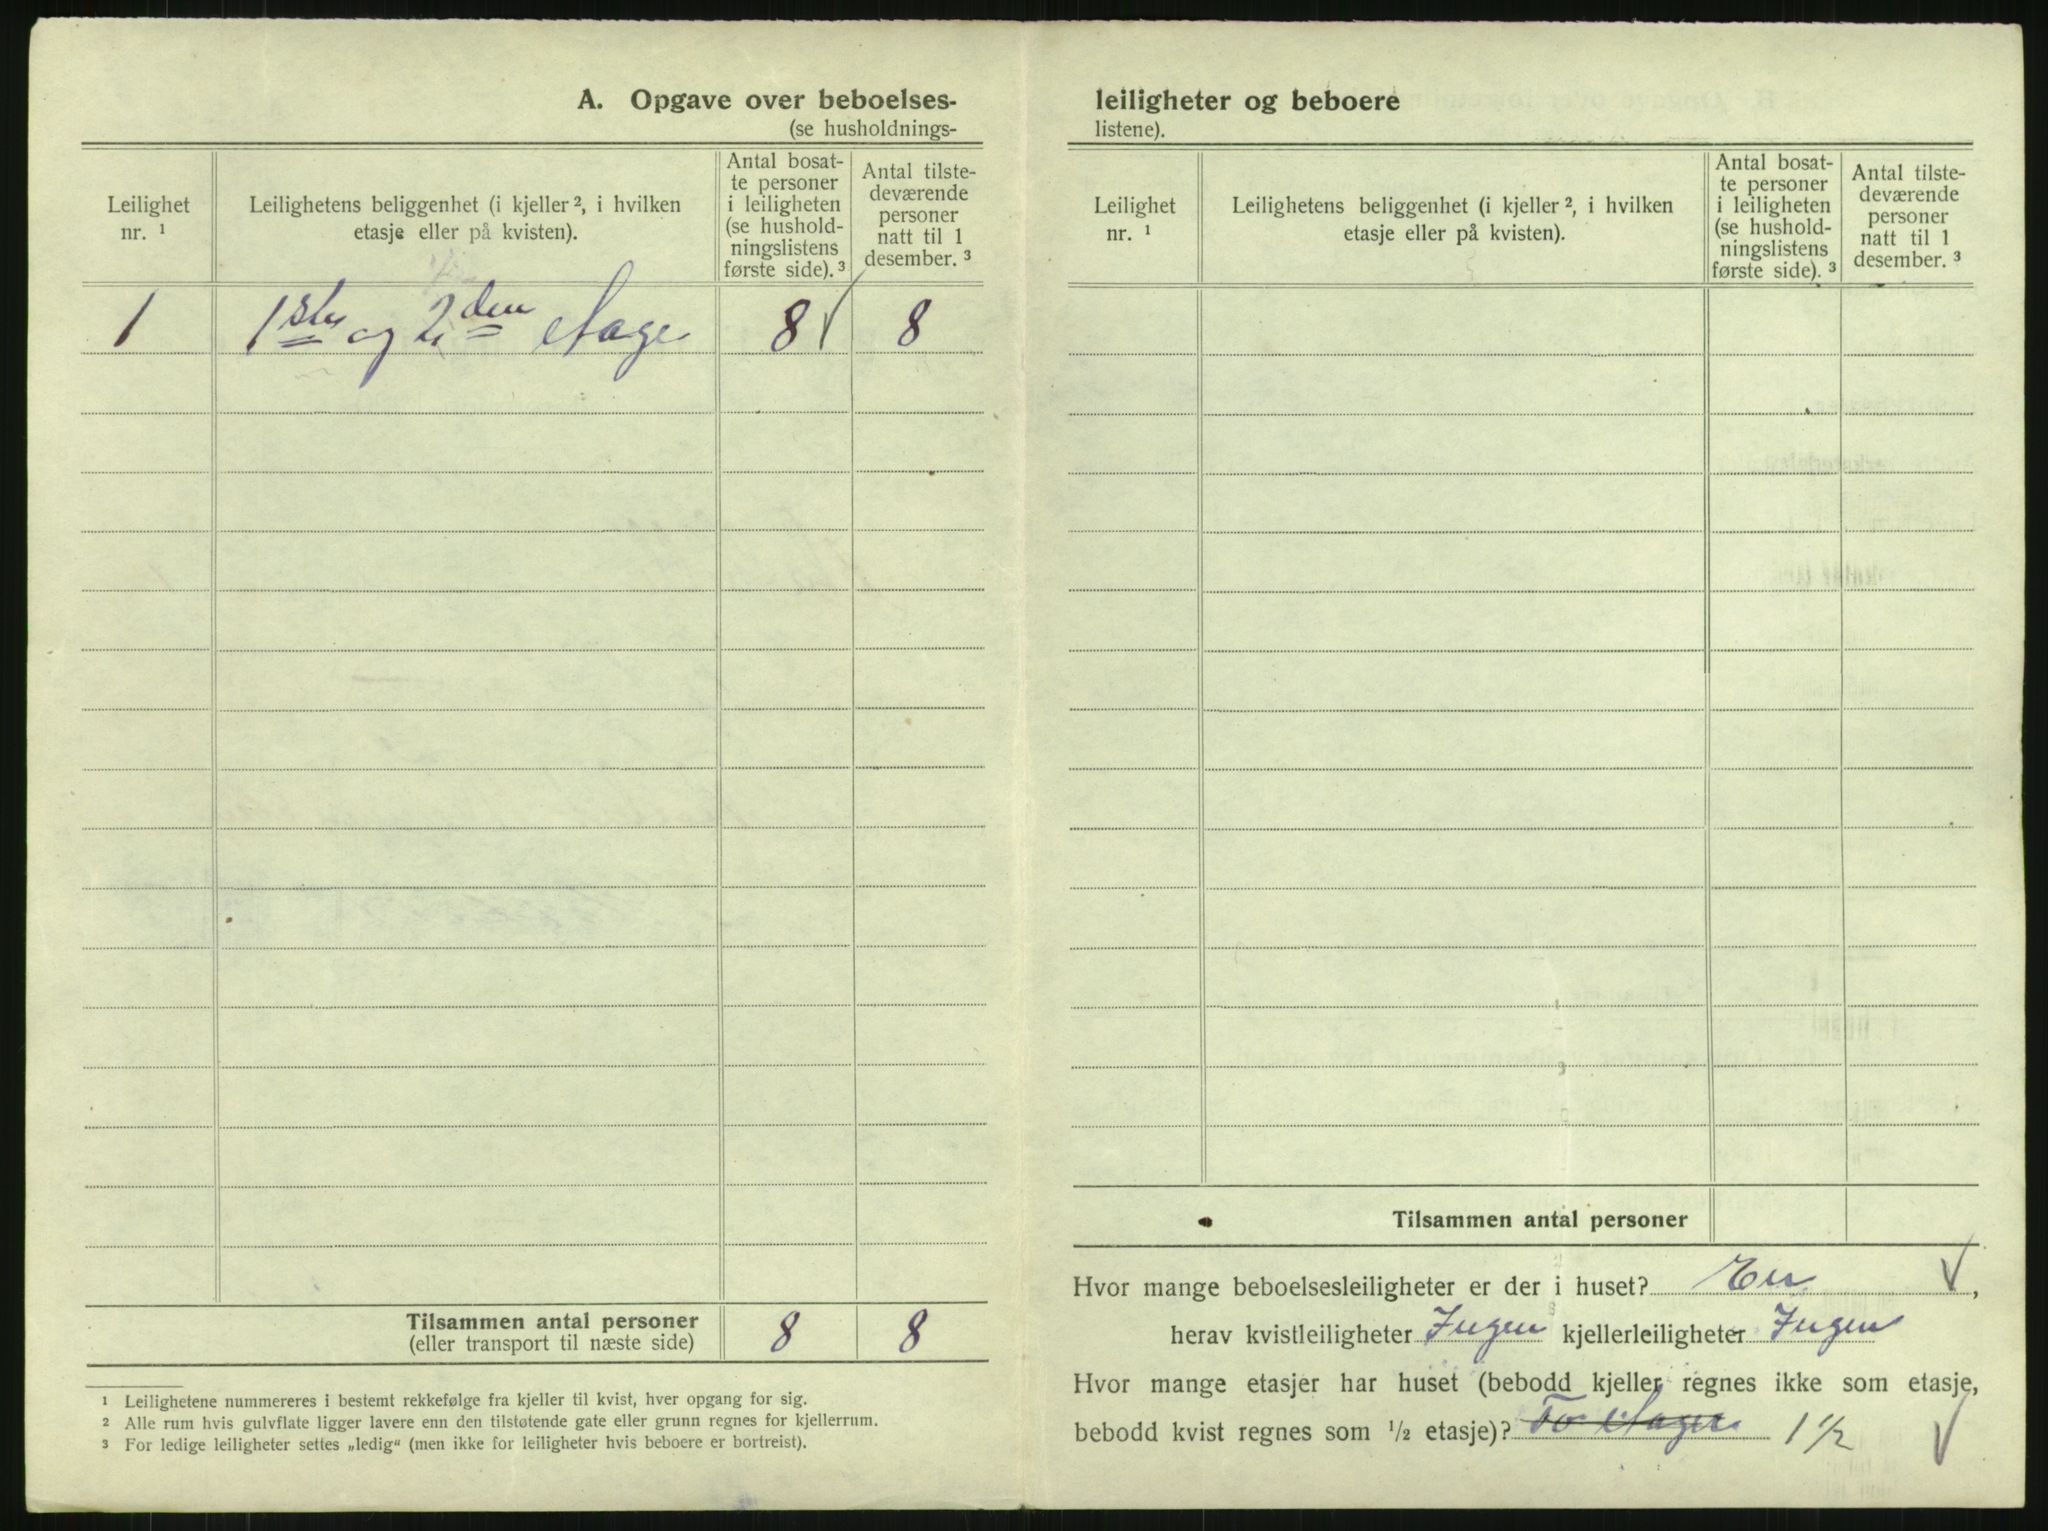 A. Opgave over beboelses-
(se husholdnings-
Leilighet
nr. ¹
Leilighetens beliggenhet (i kjeller ², i hvilken
etasje eller på kvisten).
Antal bosat-
te personer
i leiligheten
(se hushold-
ningslistens
første side). ³
Antal tilste-
deværende
personer
natt til 1
desember. ³
1 1ste og 2den etage 8 √ 8
Tilsammen antal personer
(eller transport til næste side) 8 8
¹ Leilighetene nummereres i bestemt rekkefølge fra kjeller til kvist, hver opgang for sig.
² Alle rum hvis gulvflate ligger lavere enn den tilstøtende gate eller grunn regnes for kjellerrum.
³ For ledige leiligheter settes „ledig“ (men ikke for leiligheter hvis beboere er bortreist).
leiligheter og beboere
listene).
Leilighet
nr. ¹
Leilighetens beliggenhet (i kjeller ², i hvilken
etasje eller på kvisten).
Antal bosat-
te personer
i leiligheten
(se hushold-
ningslistens
første side). ³
Antal tilste-
deværende
personer
natt til 1
desember. ³
Tilsammen antal personer
Hvor mange beboelsesleiligheter er der i huset? En √ ,
herav kvistleiligheter Ingen kjellerleiligheter Ingen
Hvor mange etasjer har huset (bebodd kjeller regnes ikke som etasje,
bebodd kvist regnes som ½ etasje)? To etager 1 ½ √